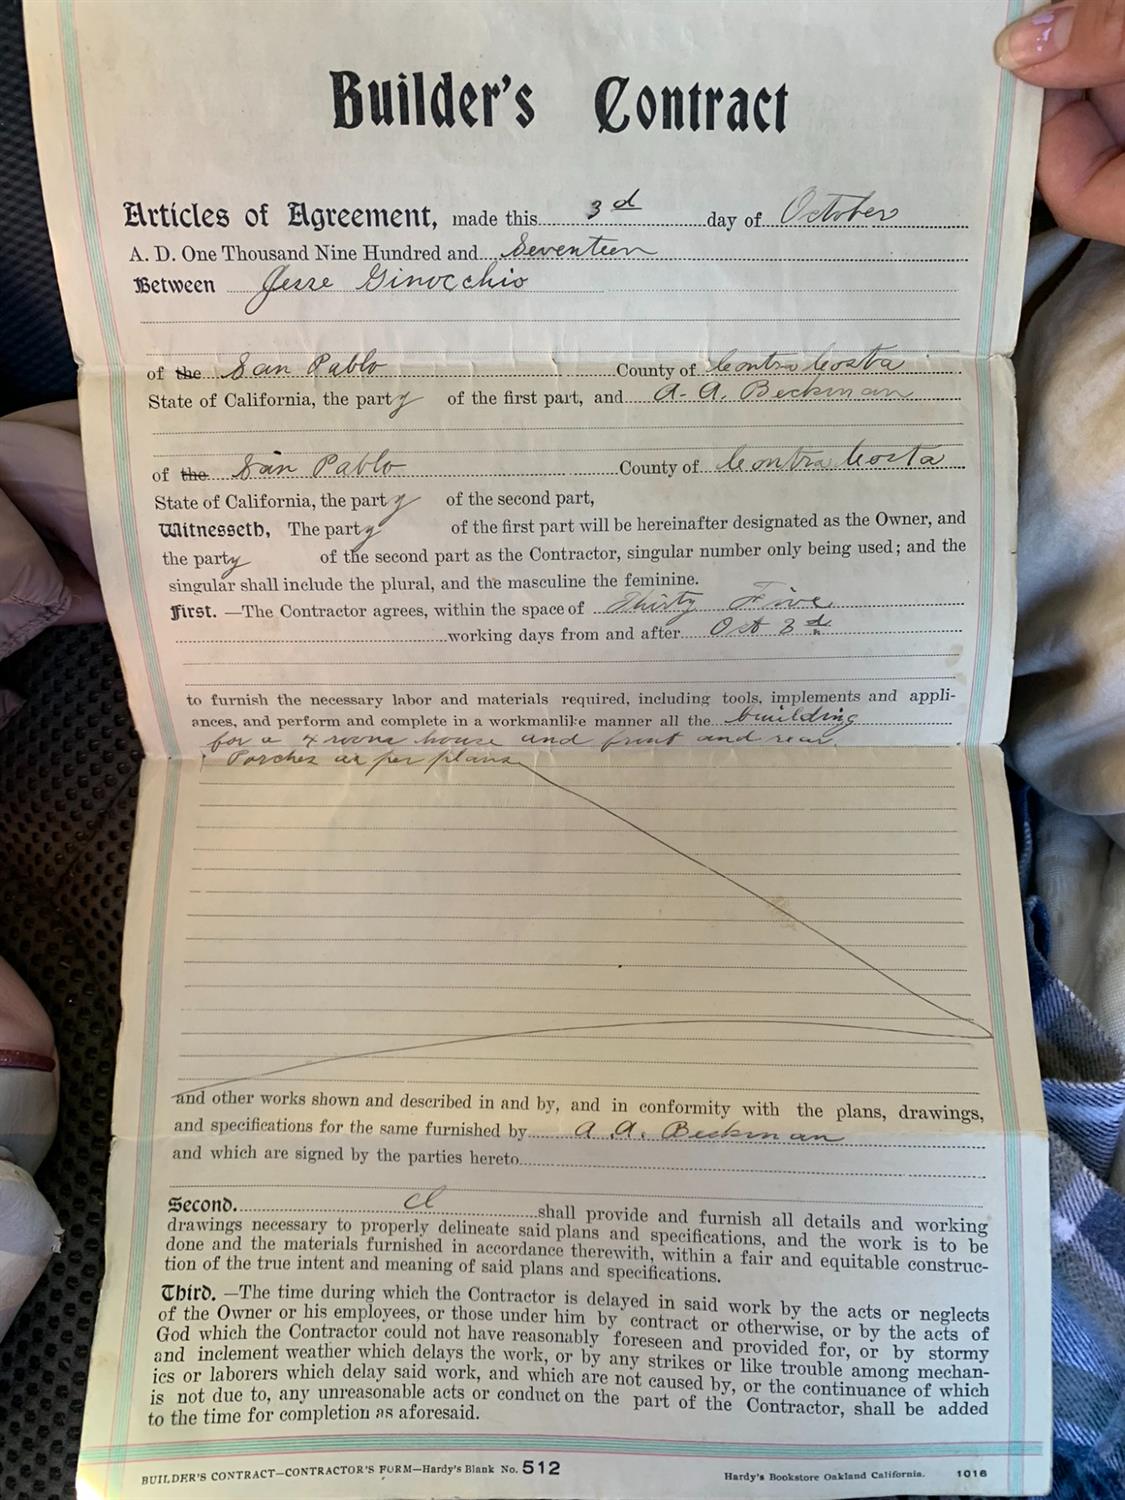 Builder's Contract
Articles of Agreement, made this 3d day of October
A. D. One Thousand Nine Hundred and Seventeen
Between Jesse Ginocchio
of the San Pablo County of Contra Costa
State of California, the party of the first part, and A. A. Beckman
of the San Pablo County of Contra Costa
State of California, the party of the second part,
Witnesseth, The party of the first part will be hereinafter designated as the Owner, and
the party of the second part as the Contractor, singular number only being used; and the
singular shall include the plural, and the masculine the feminine.
First. —The Contractor agrees, within the space of Thirty Five
working days from and after Oct 3d
to furnish the necessary labor and materials required, including tools, implements and appli-
ances, and perform and complete in a workmanlike manner all the building
for a 4 room house and front and rear
Porches as per plans
and other works shown and described in and by, and in conformity with the plans, drawings,
and specifications for the same furnished by A. A. Beckman
and which are signed by the parties hereto
Second. shall provide and furnish all details and working
drawings necessary to properly delineate said plans and specifications, and the work is to be
done and the materials furnished in accordance therewith, within a fair and equitable construc-
tion of the true intent and meaning of said plans and specifications.
Third. —The time during which the Contractor is delayed in said work by the acts or neglects
of the Owner or his employees, or those under him by contract or otherwise, or by the acts of
God which the Contractor could not have reasonably foreseen and provided for, or by stormy
and inclement weather which delays the work, or by any strikes or like trouble among mechan-
ics or laborers which delay said work, and which are not caused by, or the continuance of which
is not due to, any unreasonable acts or conduct on the part of the Contractor, shall be added
to the time for completion as aforesaid.
BUILDER'S CONTRACT—CONTRACTOR'S FORM—Hardy's Blank No. 512 Hardy's Bookstore Oakland California. 1016